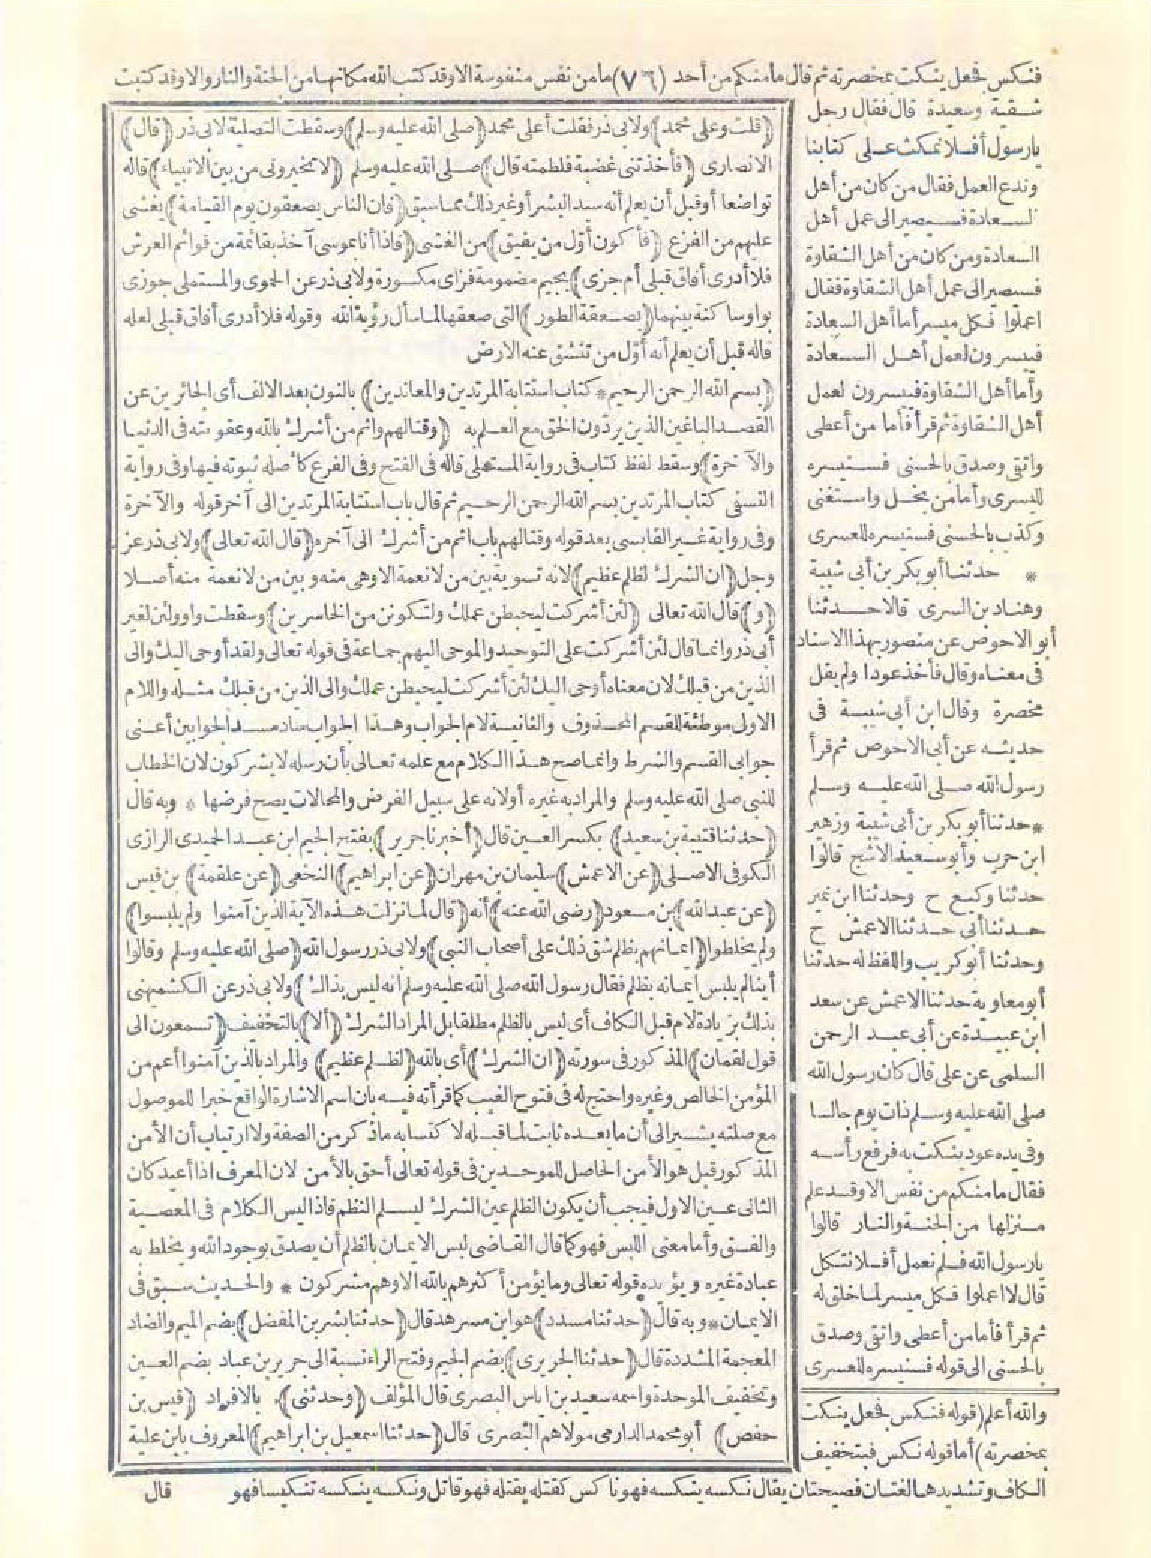 فنكس فجعل ينكت بمخصرته ثم قال ما منكم من أحد (٧٦) ما من نفس منفوسة الا وقد كتب الله مكانها من الجنة والنار والا وقد كتبت
شقية وسعيدة قال فقال رجل
يا رسول أفلا نمكث على كتابنا
وندع العمل فقال من كان من أهل
السعادة فسيصير الى عمل أهل
السعادة ومن كان من أهل الشقاوة
فسيصير الى عمل أهل الشقاوة فقال
اعملوا فكل ميسر أما أهل السعادة
فييسرون لعمل أهل السعادة
وأما أهل الشقاوة فييسرون لعمل
أهل الشقاوة ثم قرأ فأما من أعطى
واتقى وصدق بالحسنى فسنيسره
لليسرى وأما من بخل واستغنى
وكذب بالحسنى فسنيسره للعسرى
* حدثنا أبو بكر بن أبى شيبة
وهناد بن السرى قالا حدثنا
أبو الاحوص عن منصور بهذا الاسناد
فى معناه وقال فأخذ عودا ولم يقل
مخصرة وقال ابن أبى شيبة فى
حديثه عن أبى الاحوص ثم قرأ
رسول الله صلى الله عليه وسلم
* حدثنا أبو بكر بن أبى شيبة وزهير
ابن حرب وأبو سعيد الاشج قالوا
حدثنا وكيع ح وحدثنا ابن نمير
حدثنا أبى حدثنا الاعمش ح
وحدثنا أبو كريب واللفظ له حدثنا
أبو معاوية حدثنا الاعمش عن سعد
ابن عبيدة عن أبى عبد الرحمن
السلمى عن على قال كان رسول الله
صلى الله عليه وسلم ذات يوم جالسا
وفى يده عود ينكت به فرفع رأسه
فقال ما منكم من نفس الا وقد علم
منزلها من الجنة والنار قالوا
يا رسول الله فلم نعمل أفلا نتكل
قال لا اعملوا فكل ميسر لما خلق له
ثم قرأ فأما من أعطى واتقى وصدق
بالحسنى الى قوله فسنيسره للعسرى
والله أعلم (قوله فنكس فجعل ينكت
بمخصرته) أما قوله نكس فبتخفيف
(قلت وعلى محمد) ولابى ذر فقلت أعلى محمد (صلى الله عليه وسلم) وسقطت التصلية لابى ذر (قال)
الانصارى (فأخذتنى غضبة فلطمته قال) صلى الله عليه وسلم (لا تخيرونى من بين الانبياء) قاله
تواضعا أو قبل أن يعلم أنه سيد البشر أو غير ذلك مما سبق (فان الناس يصعقون يوم القيامة) يغشى
عليهم من الفزع (فأكون أول من يفيق) من الغشى (فاذا أنا بموسى آخذ بقائمة من قوائم العرش
فلا أدرى أفاق قبلى أم جزى) بجيم مضمومة فزاى مكسورة ولابى ذر عن الحموى والمستملى جوزى
بواو ساكنة بينهما (بصعقة الطور) التى صعقها لما سأل رؤية الله وقوله فلا أدرى أفاق قبلى لعله
قاله قبل أن يعلم أنه أول من تنشق عنه الارض
(بسم الله الرحمن الرحيم * كتاب استتابة المرتدين والمعاندين) بالنون بعد الالف أى الجائرين عن
القصد الباغين الذين يردون الحق مع العلم به (وقتالهم واثم من أشرك بالله وعقوبته فى الدنيا
والآخرة) وسقط لفظ كتاب فى رواية المستملى قاله فى الفتح وفى الفرع كأصله ثبوته فيها وفى رواية
النسفى كتاب المرتدين بسم الله الرحمن الرحيم ثم قال باب استتابة المرتدين الى آخر قوله والآخرة
وفى رواية غير القابسى بعد قوله وقتالهم باب اثم من أشرك الى آخره (قال الله تعالى) ولابى ذر عز
وجل (ان الشرك لظلم عظيم) لانه تسوية بين من لا نعمة الا وهى منه وبين من لا نعمة منه أصلا
(و) قال الله تعالى (لئن أشركت ليحبطن عملك ولتكونن من الخاسرين) وسقطت واو ولئن لغير
أبى ذر وانما قال لئن أشركت على التوحيد والموحى اليهم جماعة فى قوله تعالى ولقد أوحى اليك والى
الذين من قبلك لان معناه أوحى اليك لئن أشركت ليحبطن عملك والى الذين من قبلك مثله واللام
الاولى موطئة للقسم المحذوف والثانية لام الجواب وهذا الجواب ساد مسد الجوابين أعنى
جوابى القسم والشرط وانما صح هذا الكلام مع علمه تعالى بأن رسله لا يشركون لان الخطاب
للنبى صلى الله عليه وسلم والمراد به غيره أو لانه على سبيل الفرض والمحالات يصح فرضها * وبه قال
(حدثنا قتيبة بن سعيد) بكسر العين قال (أخبرنا جرير) بفتح الجيم ابن عبد الحميد الرازى
الكوفى الاصل (عن الاعمش) سليمان بن مهران (عن ابراهيم) النخعى (عن علقمة) بن قيس
(عن عبد الله) بن مسعود (رضى الله عنه) أنه (قال لما نزلت هذه الآية الذين آمنوا ولم يلبسوا)
ولم يخلطوا (ايمانهم بظلم شق ذلك على أصحاب النبى) ولابى ذر رسول الله (صلى الله عليه وسلم وقالوا
أينا لم يلبس ايمانه بظلم فقال رسول الله صلى الله عليه وسلم انه ليس بذاك) ولابى ذر عن الكشميهنى
بذلك بزيادة لام قبل الكاف أى ليس بالظلم مطلقا بل المراد الشرك (ألا) بالتخفيف (تسمعون الى
قول لقمان) المذكور فى سورته (ان الشرك) أى بالله (لظلم عظيم) والمراد بالذين آمنوا أعم من
المؤمن الخالص وغيره واحتج له فى فتوح الغيب كما قرأته فيه بان اسم الاشارة الواقع خبرا للموصول
مع صلته يشير الى أن ما بعده ثابت لما قبله لاكتسابه ما ذكر من الصفة ولا ارتياب أن الأمن
المذكور قبل هو الأمن الحاصل للموحدين فى قوله تعالى أحق بالأمن لان المعرف اذا أعيد كان
الثانى عين الاول فيجب أن يكون الظلم عين الشرك ليسلم النظم فاذا ليس الكلام فى المعصية
والفسق وأما معنى اللبس فهو كما قال القاضى لبس الايمان بالظلم أن يصدق بوجود الله ويخلط به
عبادة غيره ويؤيده قوله تعالى وما يؤمن أكثرهم بالله الا وهم مشركون * والحديث سبق فى
الايمان * وبه قال (حدثنا مسدد) هو ابن مسرهد قال (حدثنا بشر بن المفضل) بضم الميم والضاد
المعجمة المشددة قال (حدثنا الجريرى) بضم الجيم وفتح الراء نسبة الى جرير بن عباد بضم العين
وتخفيف الموحدة واسمه سعيد بن اياس البصرى قال المؤلف (وحدثنى) بالافراد (قيس بن
حفص) أبو محمد الدارمى مولاهم البصرى قال (حدثنا اسمعيل بن ابراهيم) المعروف بابن علية
الكاف وتشديدها لغتان فصيحتان يقال نكسه ينكسه فهو ناكس كقتله يقتله فهو قاتل ونكسه ينكسه تنكيسا فهو قال